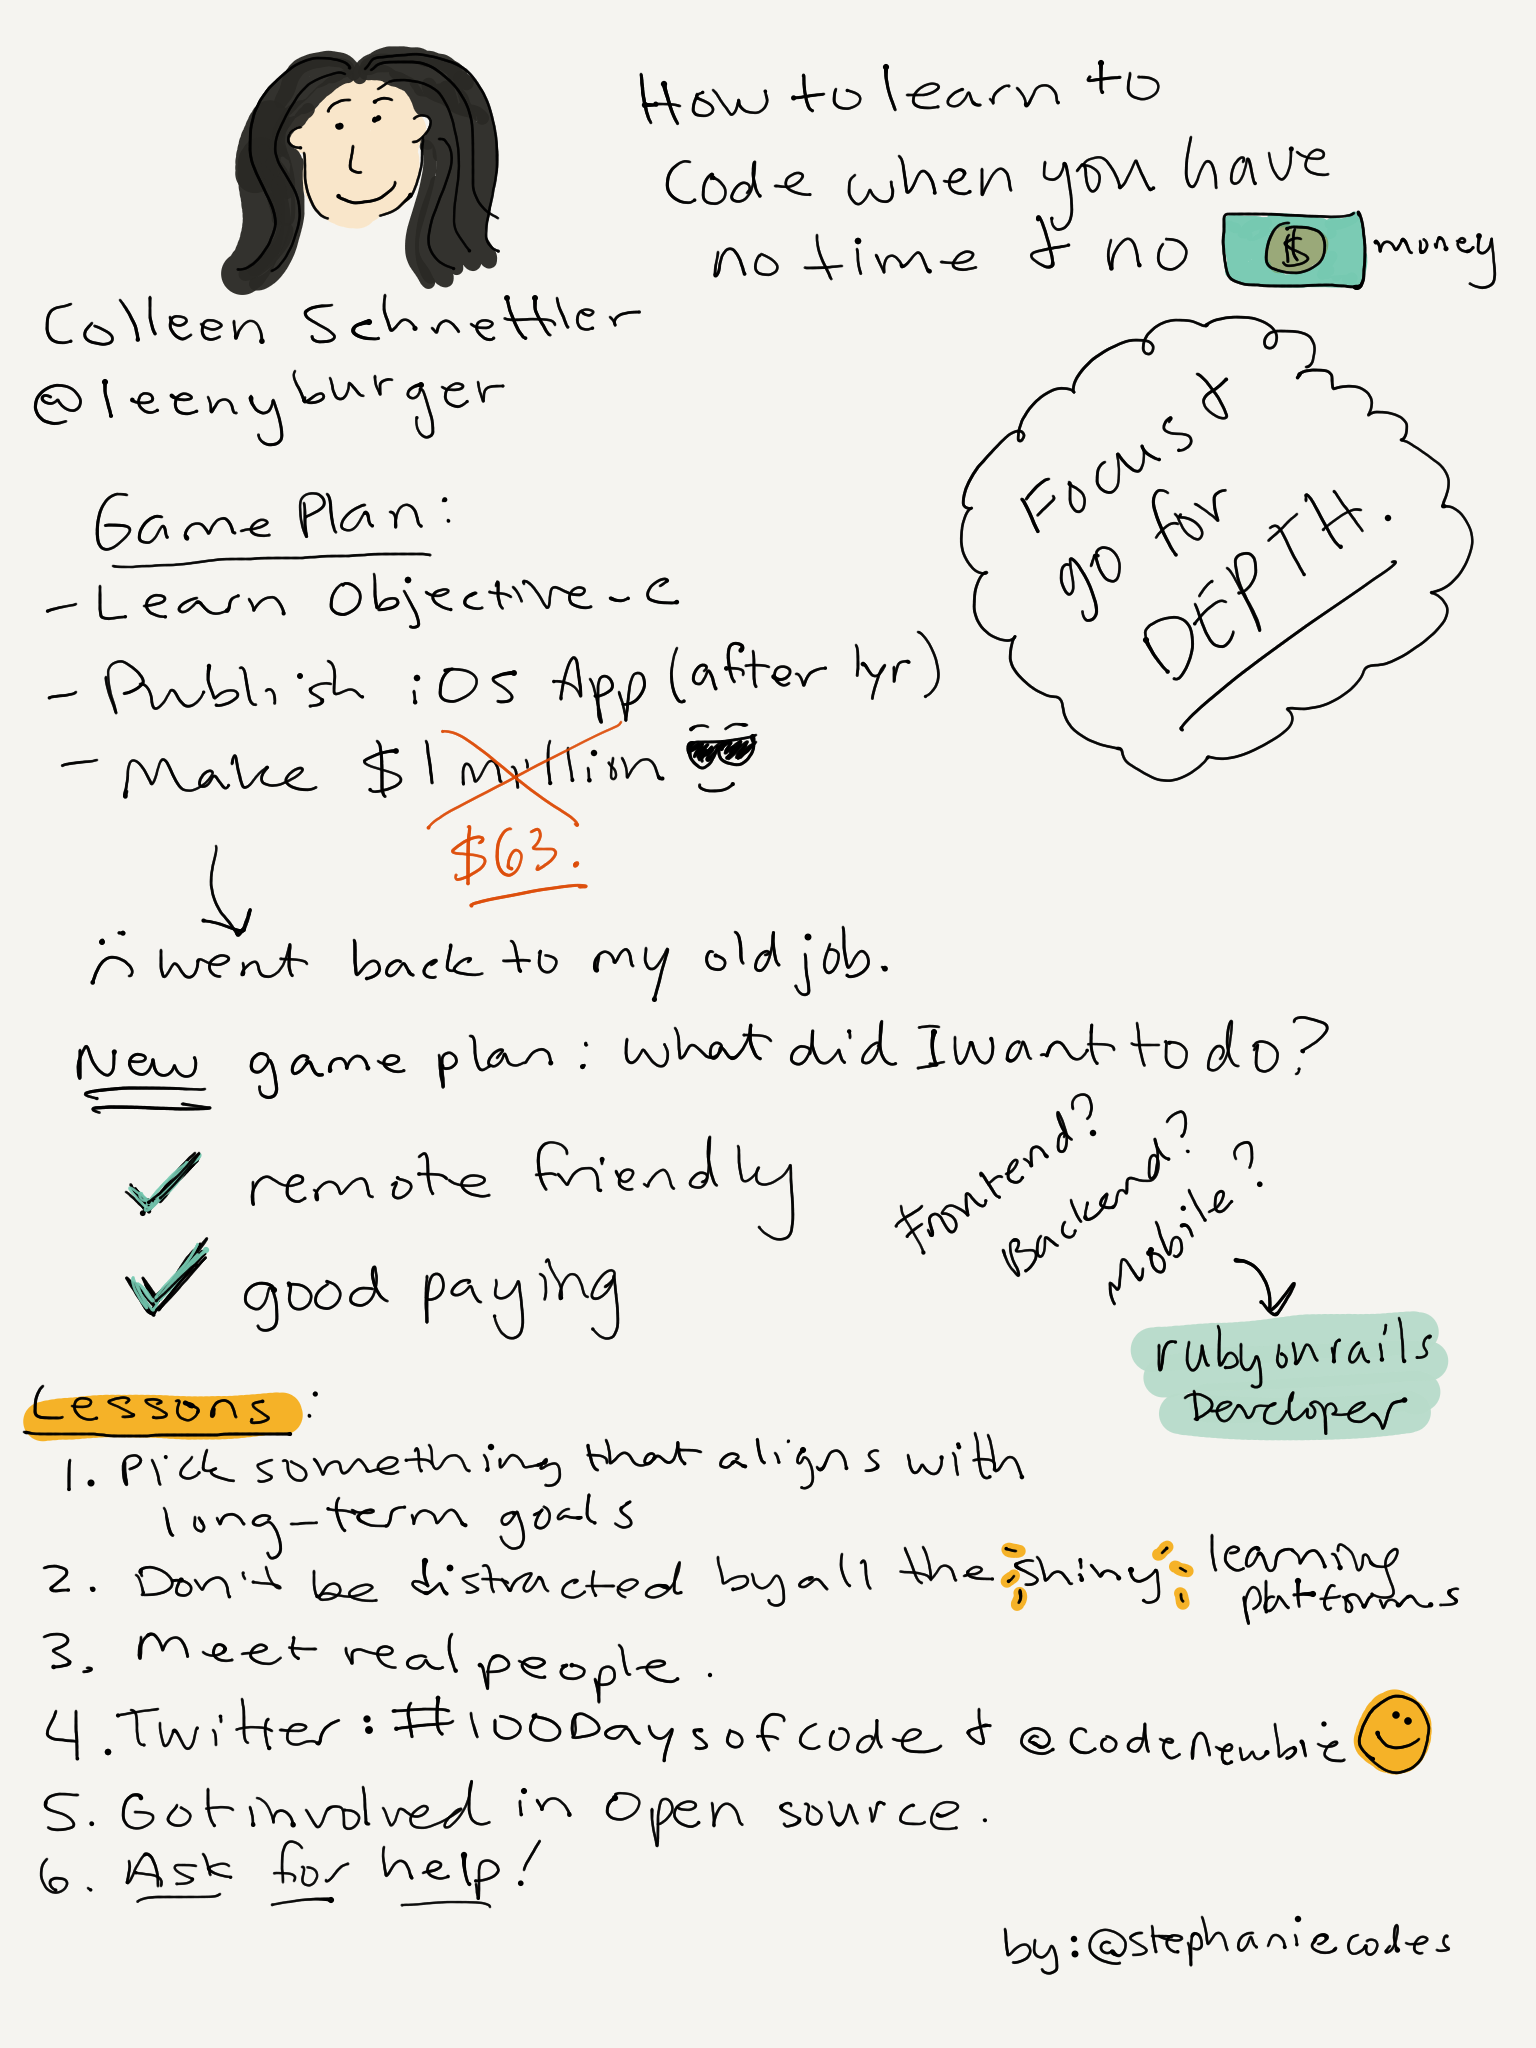 How to learn to
code when you have
no time & no $ money
Colleen Schnettler
@leenyburger
Focus &
go for
DEPTH.
Game Plan:
- Learn Objective-C
- Publish iOS App (after 1yr)
- Make $1 million
$63.
went back to my old job.
New game plan: what did I want to do?
remote friendly
good paying
Frontend?
Backend?
Mobile?
ruby on rails
Developer
Lessons:
1. Pick something that aligns with
long-term goals
2. Don't be distracted by all the shiny learning
platforms
3. Meet real people.
4. Twitter: #100DaysofCode & @codenewbie
5. Got involved in Open source.
6. Ask for help!
by: @stephaniecodes